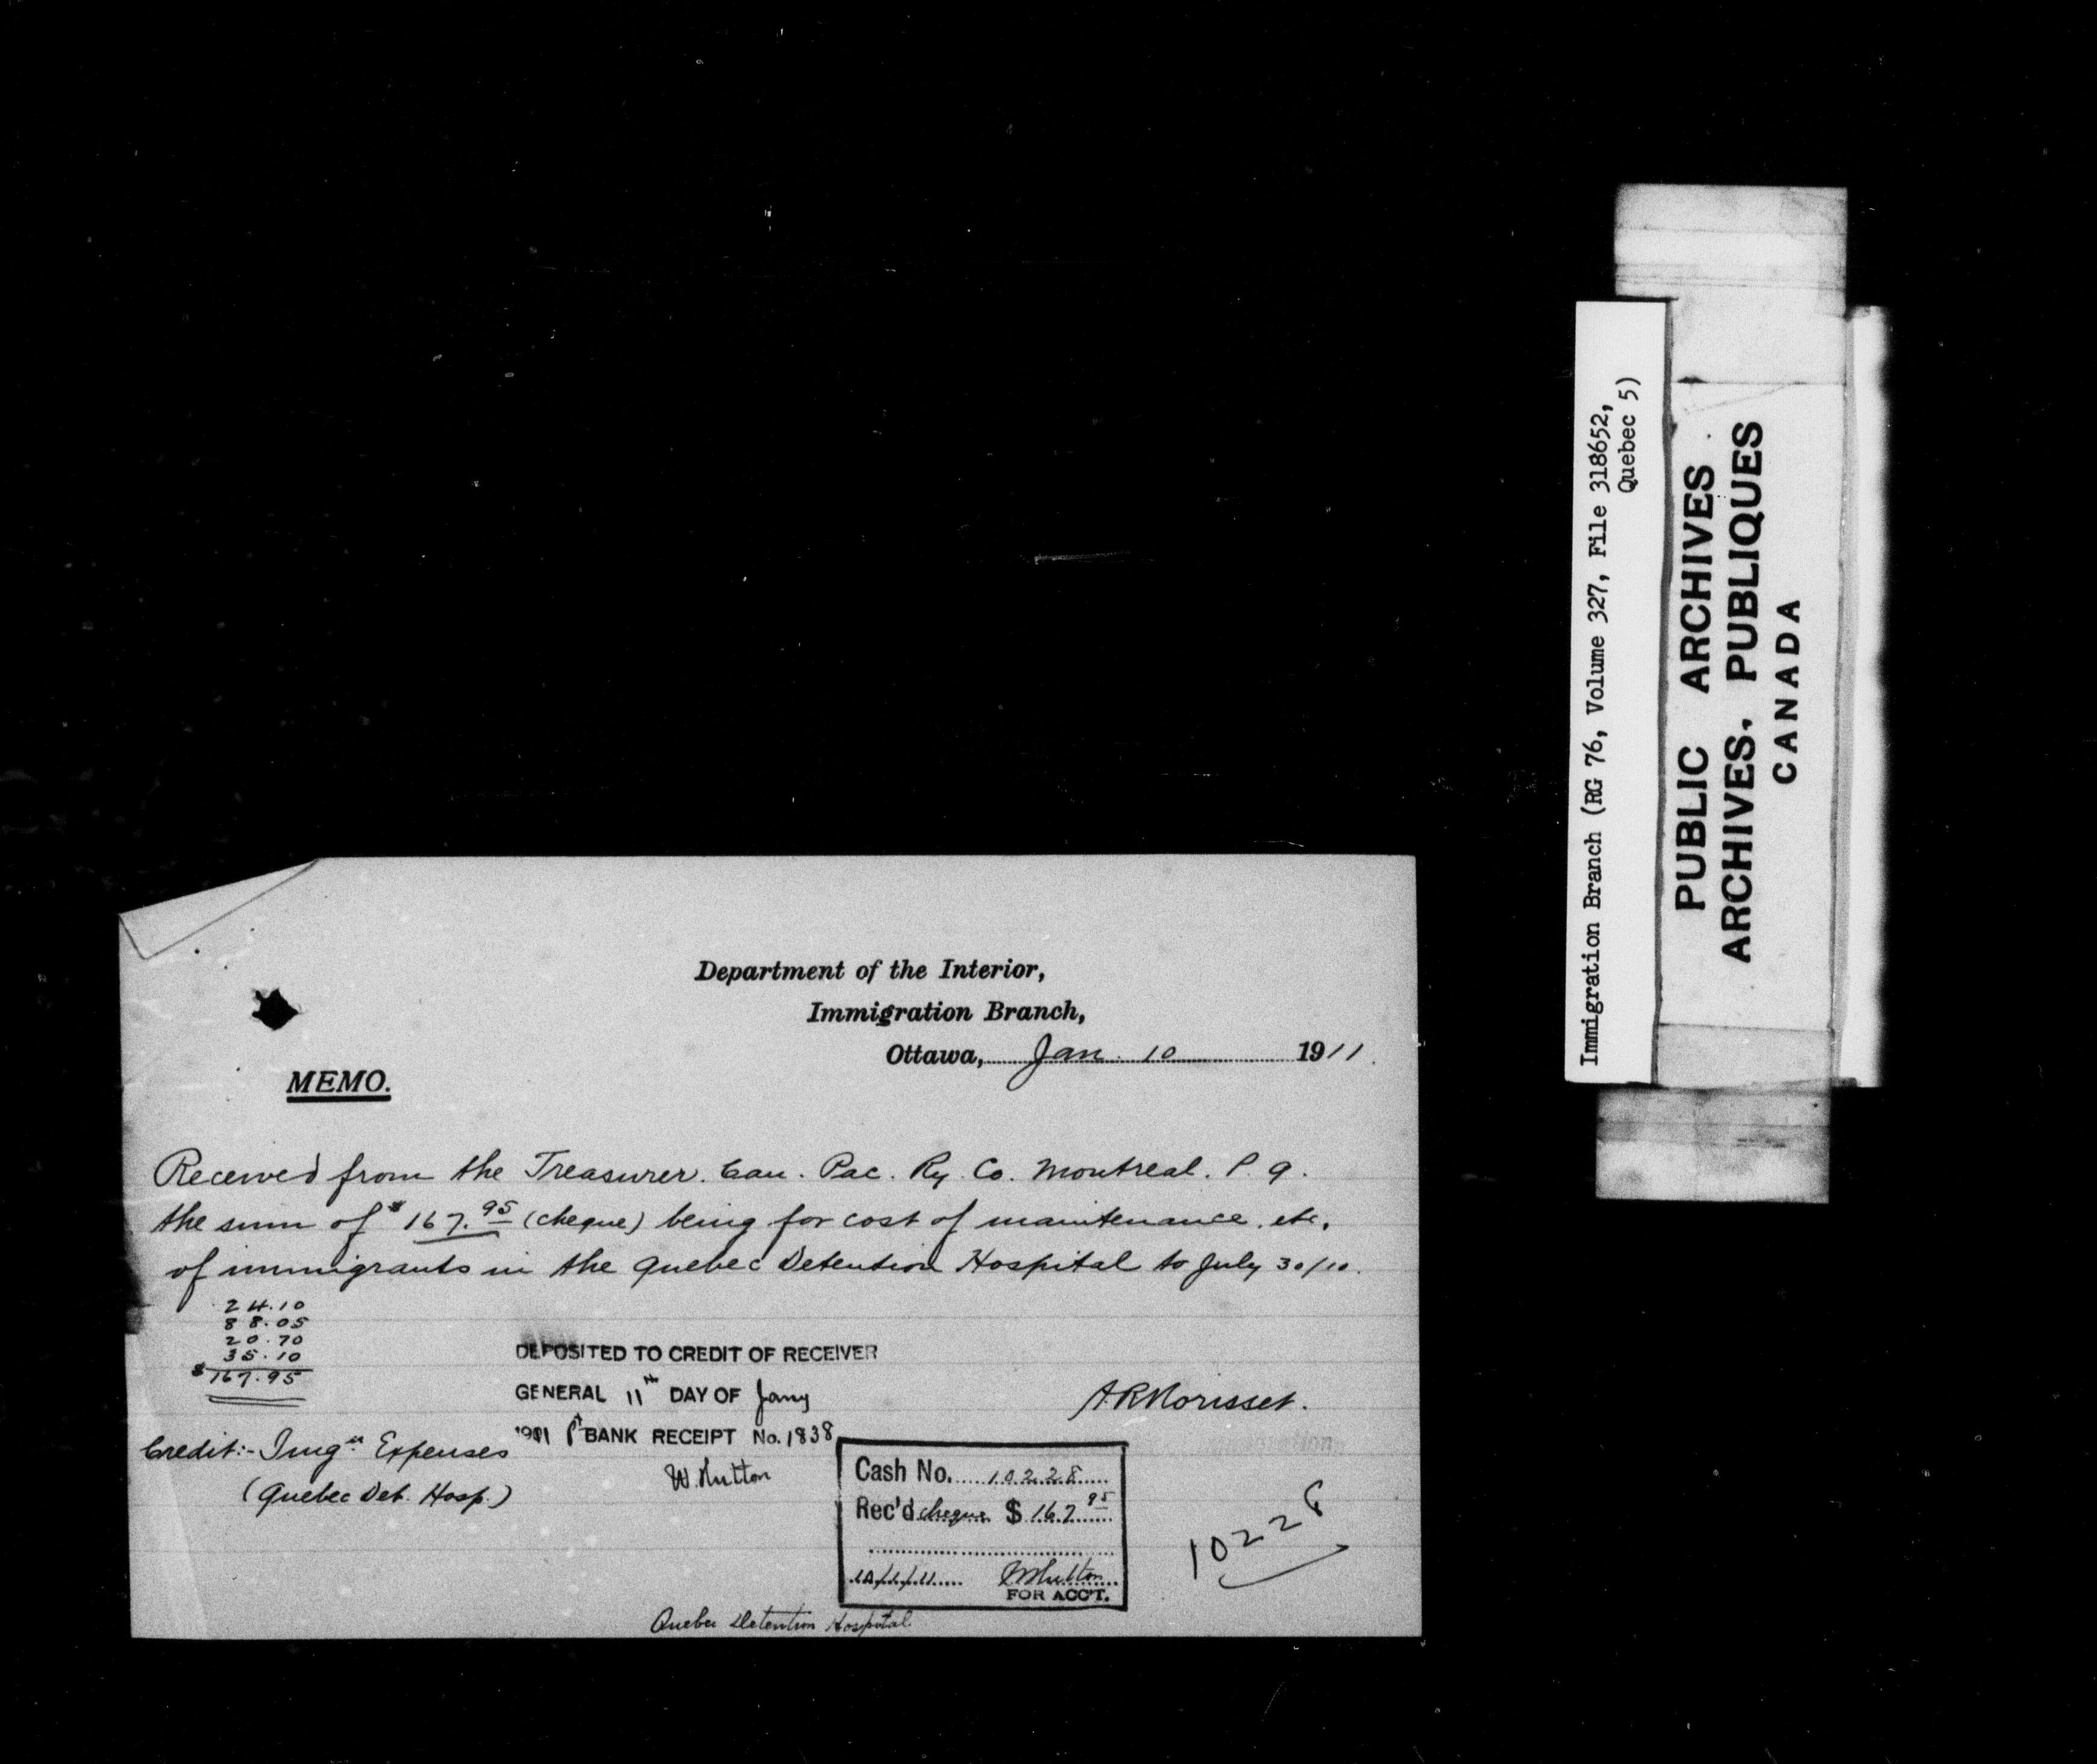 Department of the Interior,
Immigration Branch,
Ottawa, Jan. 10 1911.
MEMO.
Received from the Treasurer. Can. Pac. Ry. Co. Montreal. P. Q.
the sum of $167.95 (cheque) being for cost of maintenance, etc.
of immigrants in the Quebec Detention Hospital to July 30/10.
24.10
88.05
20.70
35.10
$167.95
DEPOSITED TO CREDIT OF RECEIVER
GENERAL 11th DAY OF Jany
BANK RECEIPT No. 1838
W. Hutton
A.R. Morisset.
Credit:- Imgn Expenses
(Quebec Det. Hosp.)
Cash No. 10228
Rec'd cheque $ 167.95
10/1/11 W Hutton
FOR ACC'T.
10228
Quebec Detention Hospital
Immigration Branch (RG 76, Volume 327, File 318652,
Quebec 5)
PUBLIC ARCHIVES
ARCHIVES PUBLIQUES
CANADA